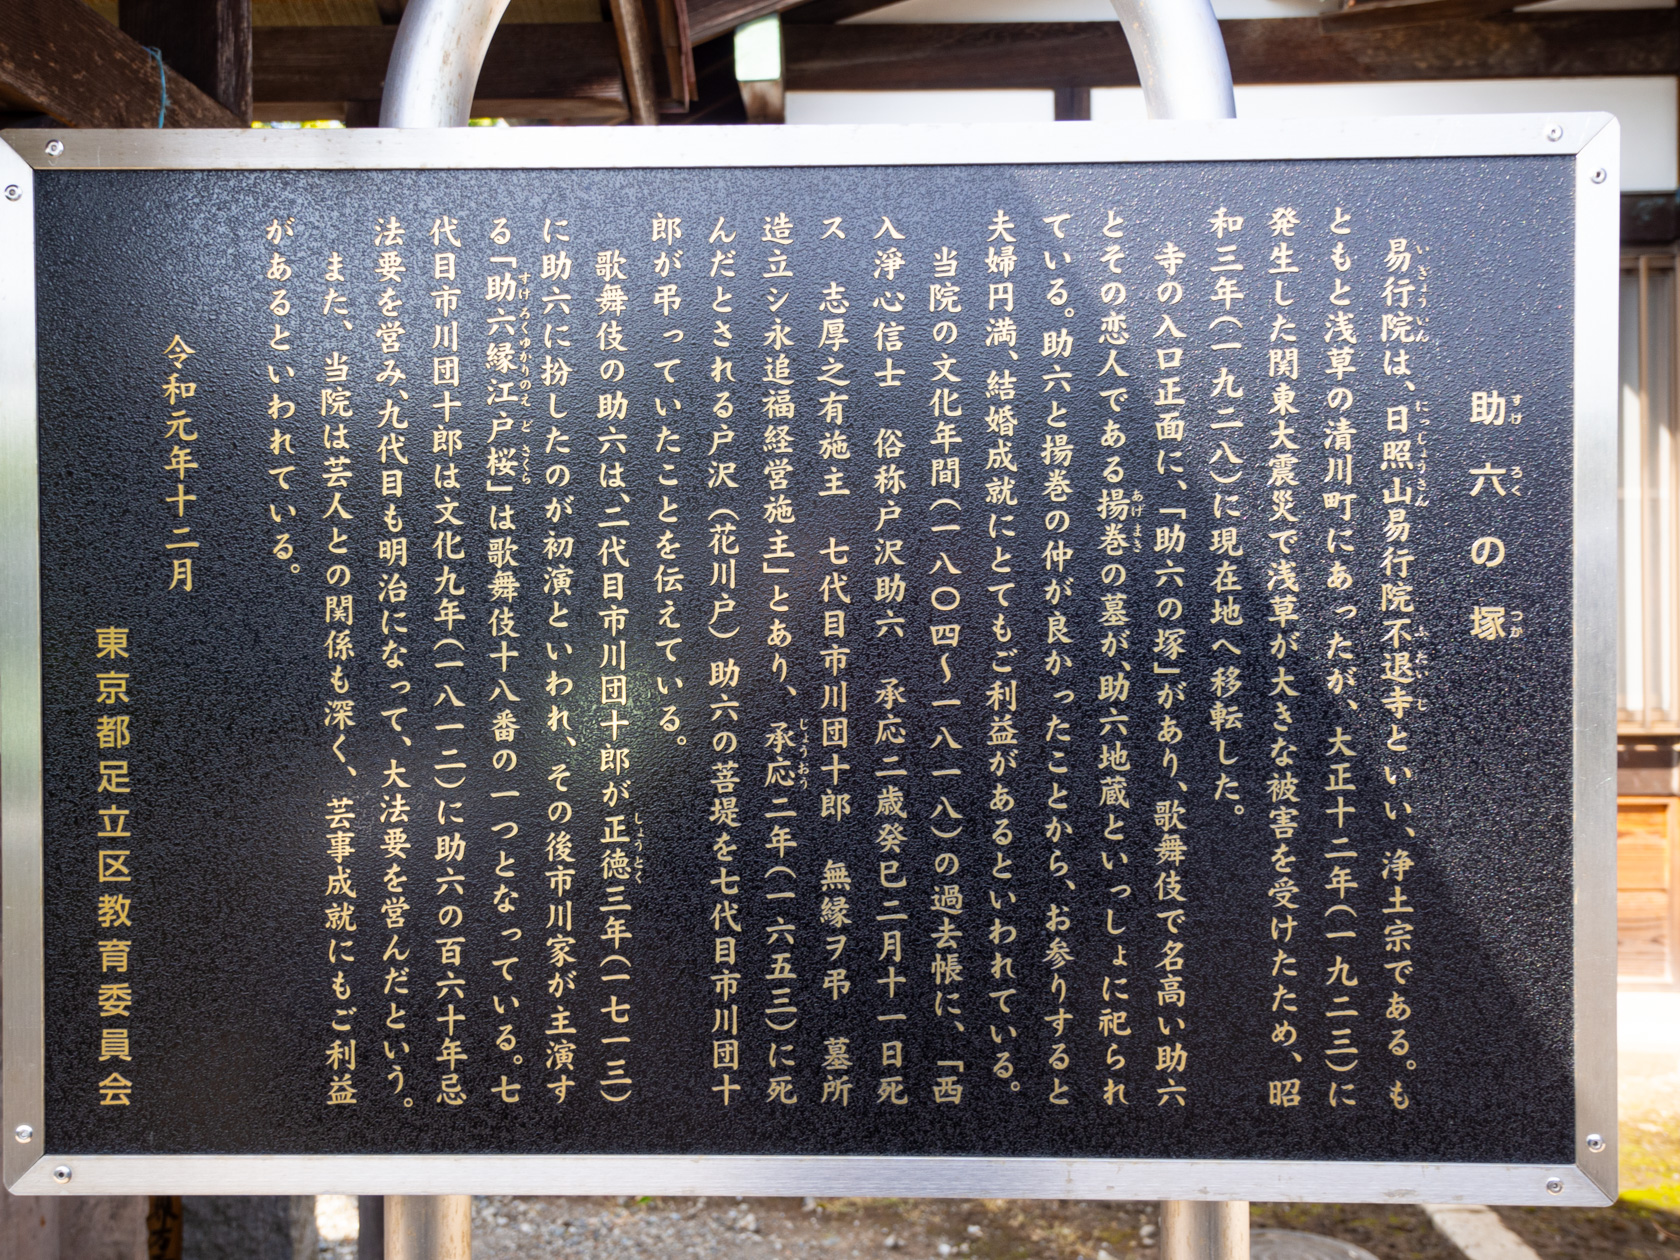 助六の塚
易行院は、日照山易行院不退寺といい、浄土宗である。も
ともと浅草の清川町にあったが、大正十二年(一九二三)に
発生した関東大震災で浅草が大きな被害を受けたため、昭
和三年(一九二八)に現在地へ移転した。
寺の入口正面に、「助六の塚」があり、歌舞伎で名高い助六
とその恋人である揚巻の墓が、助六地蔵といっしょに祀られ
ている。助六と揚巻の仲が良かったことから、お参りすると
夫婦円満、結婚成就にとてもご利益があるといわれている。
当院の文化年間(一八〇四〜一八一八)の過去帳に、「西
入淨心信士 俗称戸沢助六 承応二歳癸巳二月十一日死
ス 志厚之有施主 七代目市川団十郎 無縁ヲ弔 墓所
造立シ永追福経営施主」とあり、承応二年(一六五三)に死
んだとされる戸沢(花川戸)助六の菩堤を七代目市川団十
郎が弔っていたことを伝えている。
歌舞伎の助六は、二代目市川団十郎が正徳三年(一七一三)
に助六に扮したのが初演といわれ、その後市川家が主演す
る「助六縁江戸桜」は歌舞伎十八番の一つとなっている。七
代目市川団十郎は文化九年(一八一二)に助六の百六十年忌
法要を営み、九代目も明治になって、大法要を営んだという。
また、当院は芸人との関係も深く、芸事成就にもご利益
があるといわれている。
令和元年十二月
東京都足立区教育委員会